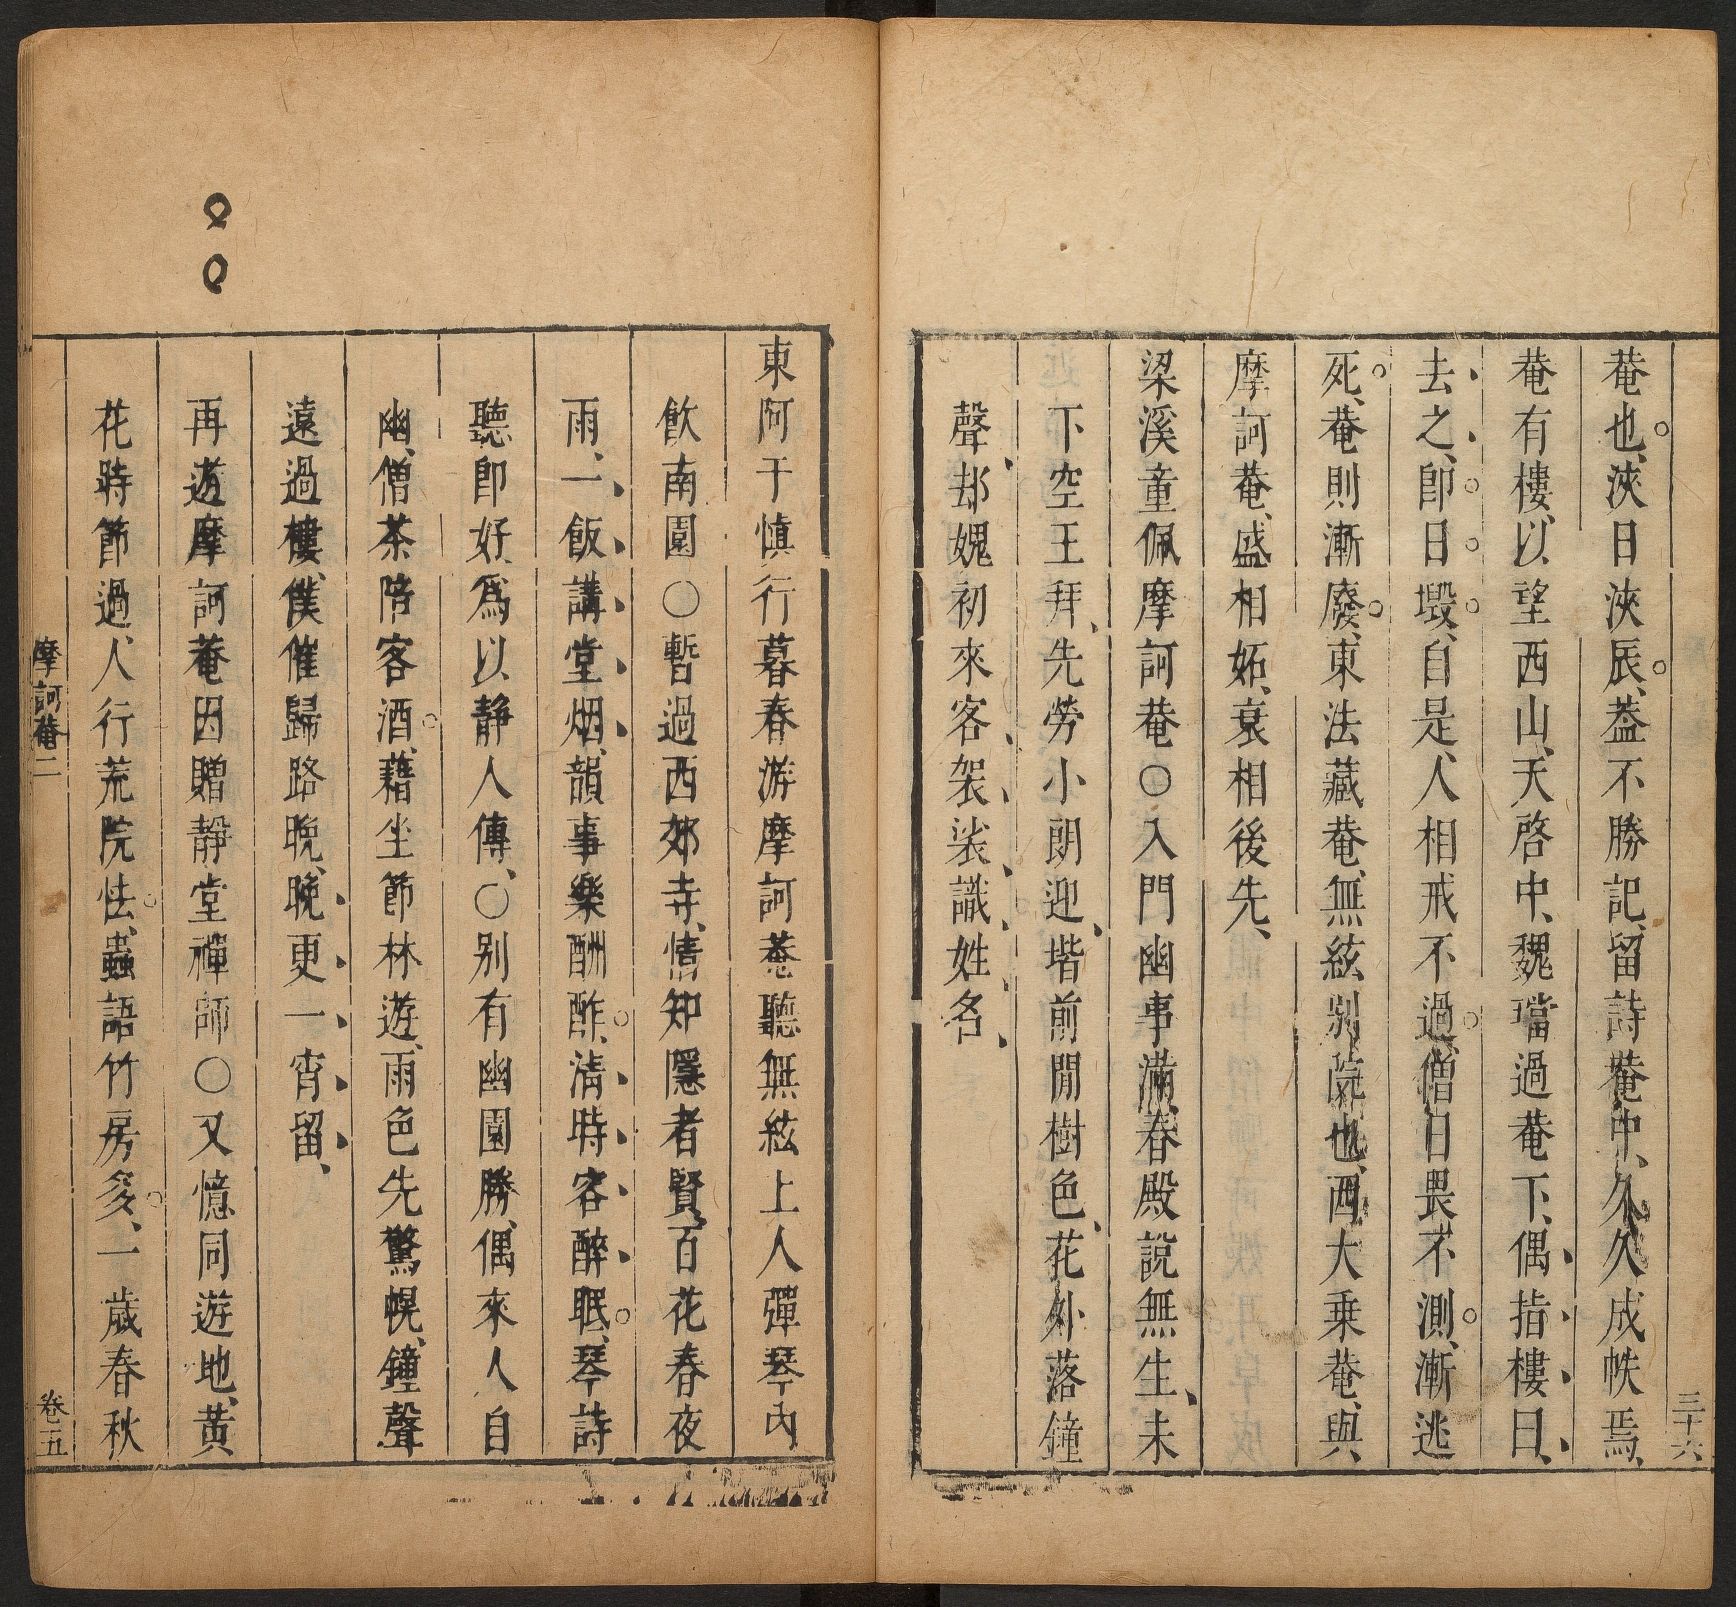 三十六
菴也、浹日浹辰、葢不勝記、留詩菴中、久久成帙焉、
菴有樓、以望西山、天啓中、魏璫過菴下、偶指樓曰、
去之、即日毀、自是、人相戒不過、僧日畏不測、漸逃
死、菴則漸廢、東法藏菴、無絃別院也、西大乗菴、與
摩訶菴、盛相妬、衰相後先、
梁溪童佩摩訶菴○入門幽事滿、春殿說無生、未
下空王拜、先勞小朗迎、堦前閒樹色、花外落鐘
聲、却媿初來客、袈裟識姓名、
東阿于慎行暮春游摩訶菴聽無絃上人彈琴內
飲南園○暫過西郊寺、情知隱者賢、百花春夜
雨、一飯講堂烟、韻事樂酬酢、清時容醉眠、琴詩
聽即好、爲以静人傳、○别有幽園勝、偶來人自
幽、僧茶陪客酒、藉坐節林遊、雨色先驚幌、鐘聲
遠過樓、僕催歸路晚、晚更一宵留、
再遊摩訶菴因贈靜堂禪師○又憶同遊地、黃
花時節過、人行荒院怯、蟲語竹房多、一歲春秋
摩訶菴二
卷五